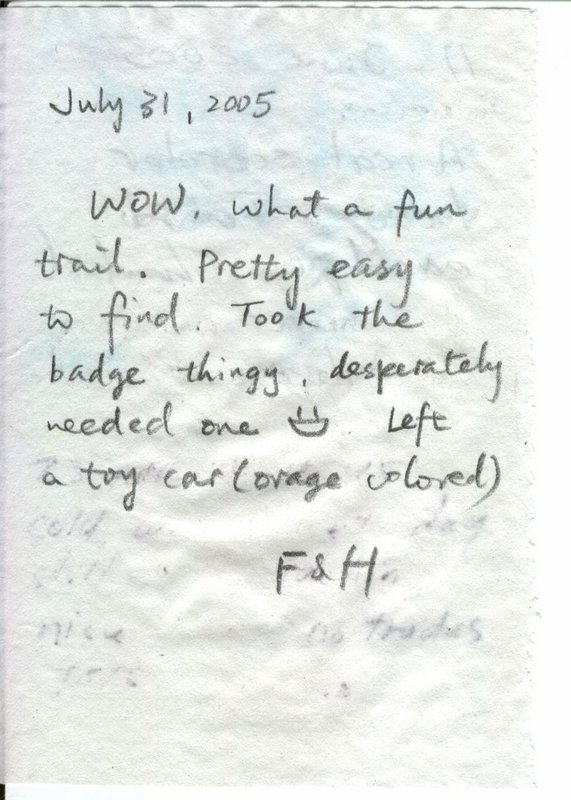 July 31, 2005
WOW, what a fun
trail. Pretty easy
to find. Took the
badge thingy, desperately
needed one Left
a toy car (orage colored)
F & H
cold
day
nice
no trades